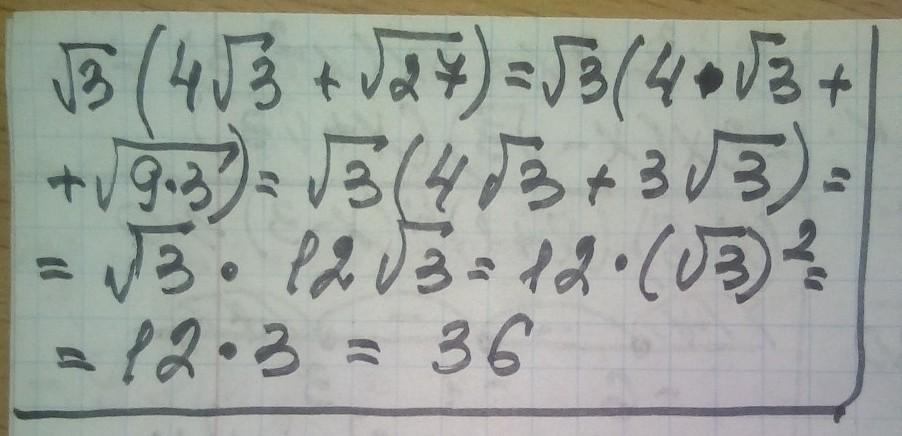 √3(4√3 + √27) = √3(4·√3 +
+√9·3) = √3(4√3 + 3√3) =
= √3 · 12√3 = 12·(√3)² =
= 12·3 = 36